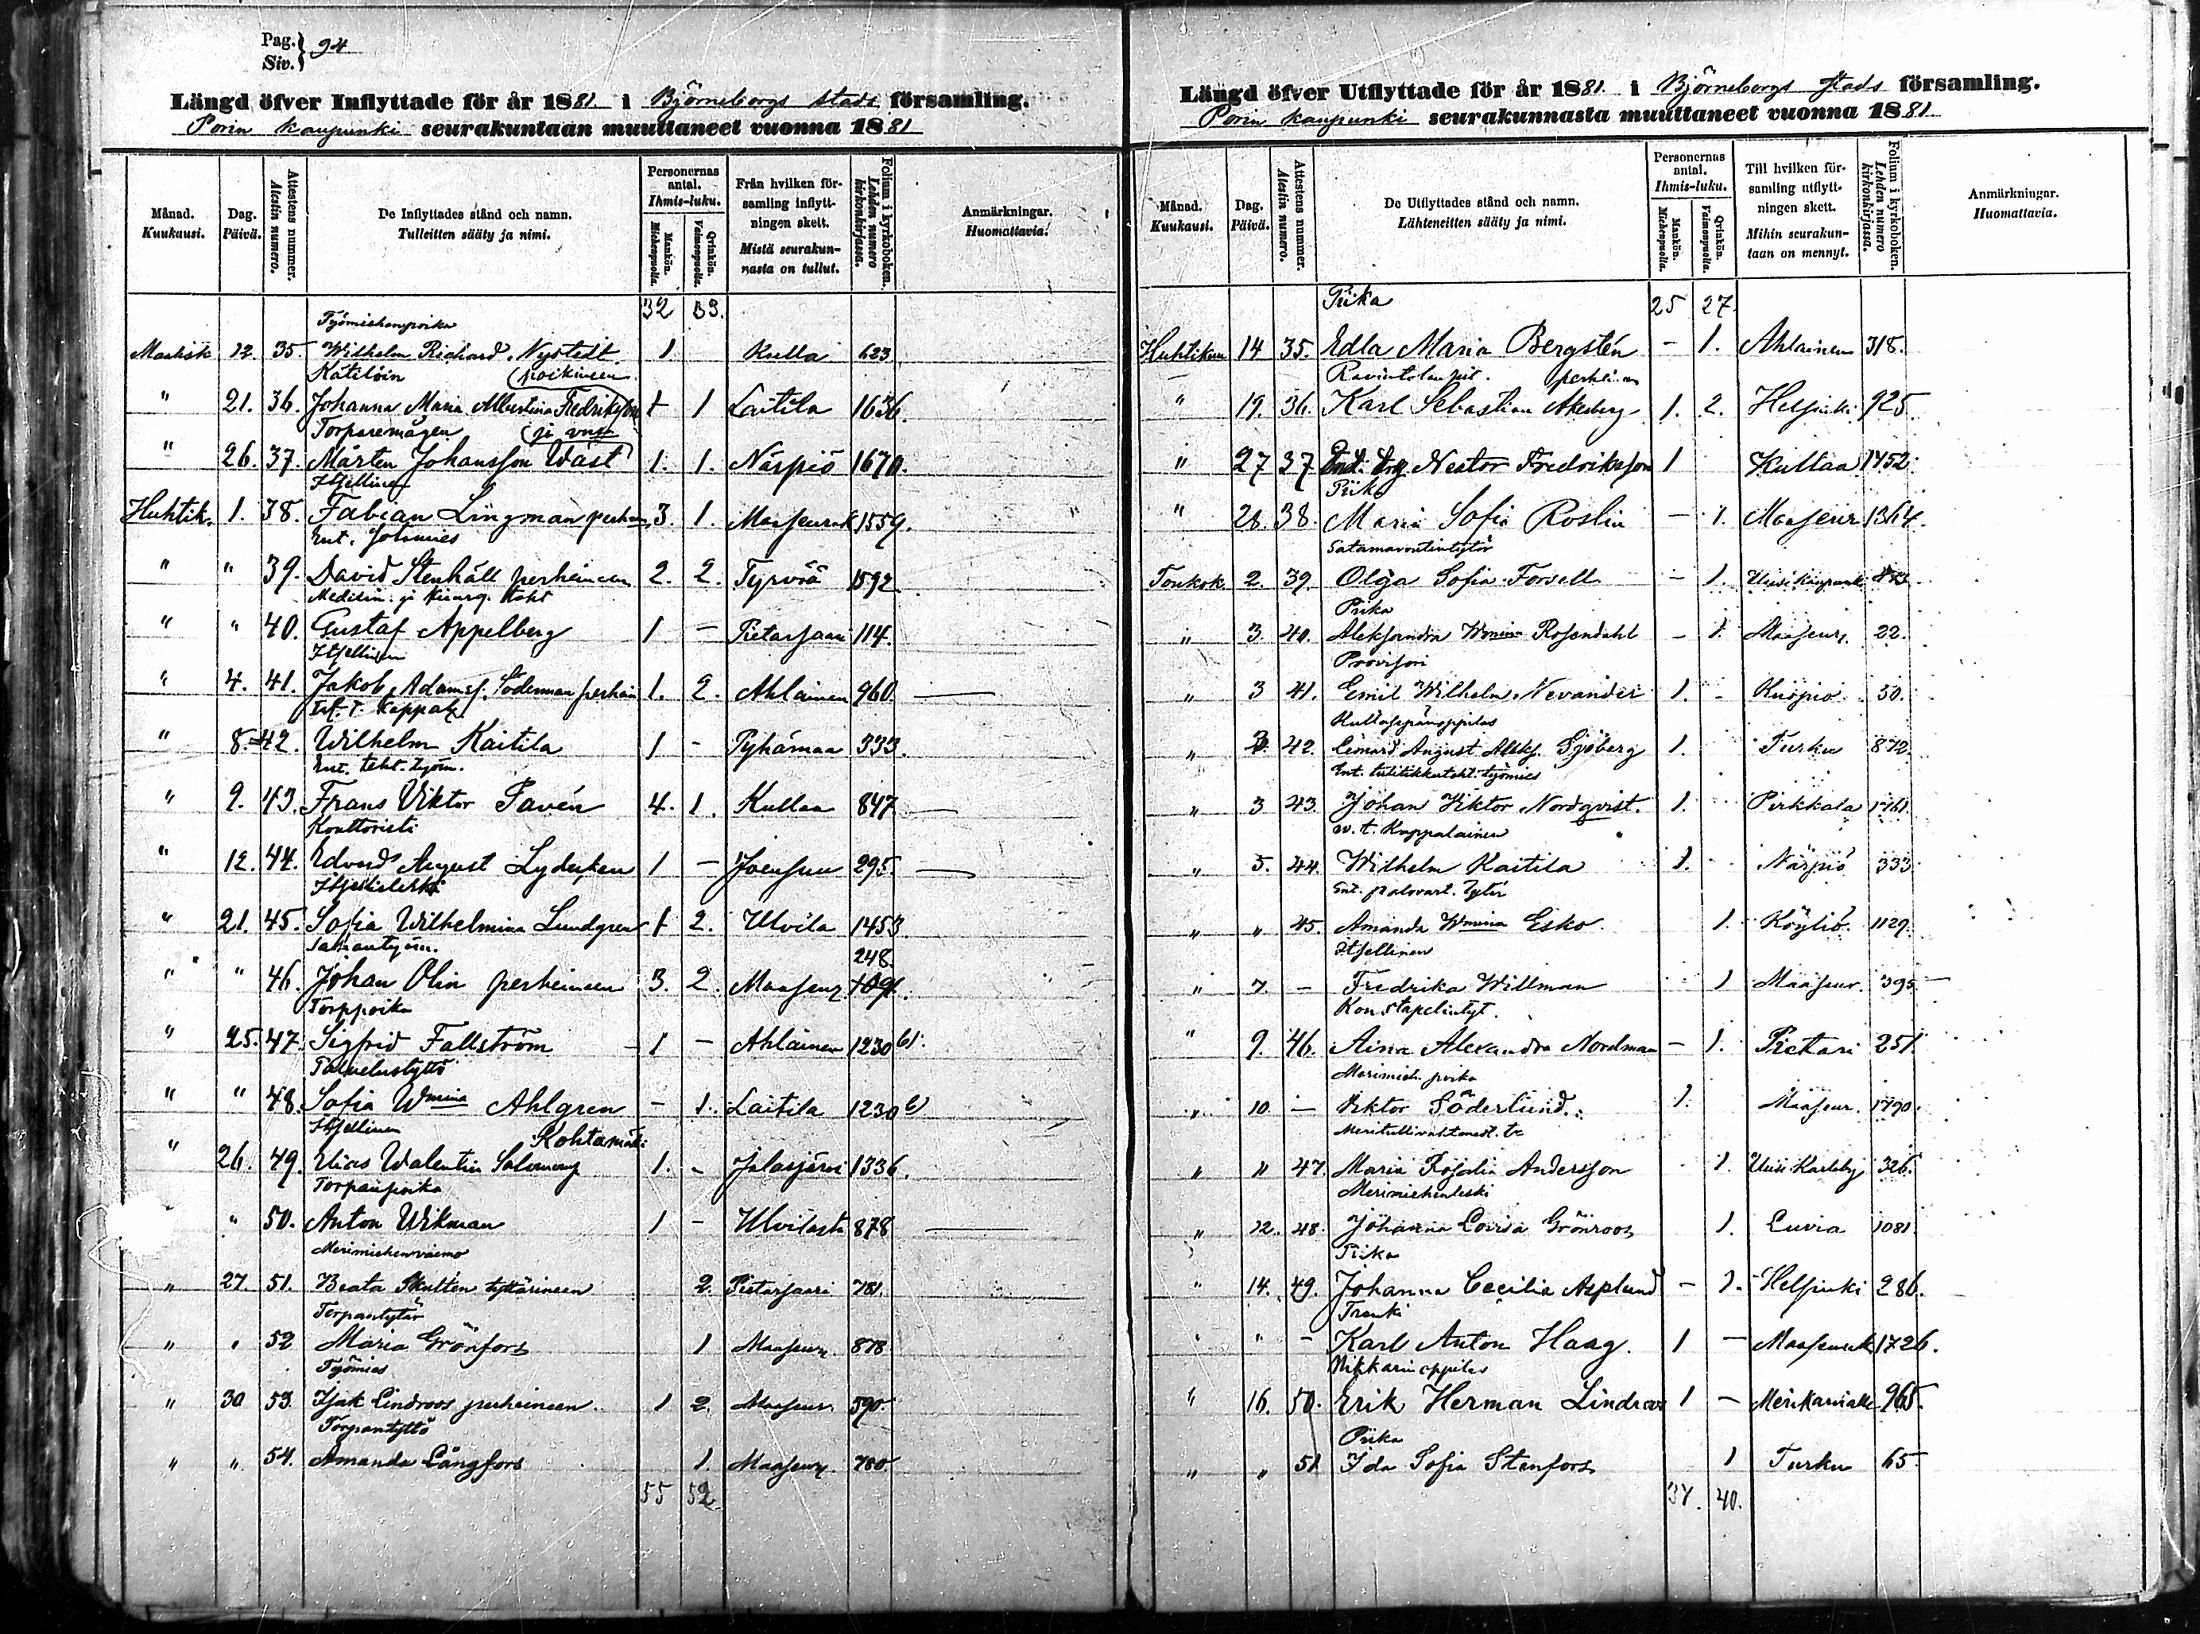 Pag. Siv. } 94
Längd öfver Inflyttade för år 1881 i Björneborgs stads församling.
Porin kaupunki seurakuntaan muuttaneet vuonna 1881
Månad. Kuukausi.
Dag. Päivä.
Attestens nummer. Atestin numero.
De Inflyttades stånd och namn. Tulleitten sääty ja nimi.
Personernas antal. Ihmis-luku.
Mankön. Miehenpuolia.
Qvinkön. Vaimonpuolia.
Från hvilken församling inflyttningen skett. Mistä seurakunnasta on tullut.
Folium i kyrkoboken. Lehden numero kirkonkirjassa.
Anmärkningar. Huomattavia.
32 33.
Työmiehenpoika
Maalisk 12. 35. Wilhelm Richard Nystedt 1 Kulla 623
Kätilöin poikineen
" 21. 36. Johanna Maria Albertina Fredriksson 1 1 Laitila 1636.
Torparemågen ja vmo
" 26. 37. Mårten Johansson Wäst 1. 1. Närpiö 1670.
Itsellinen
Huhtik. 1. 38. Fabian Lingman perhein 3. 1. Maaseurak 1559.
Ent. sotamies
" " 39. David Stenhäll perheineen 2. 2. Tyrvää 1592
Medisin. ja kirurg. toht
" " 40. Gustaf Appelberg 1 – Pietarsaari 114.
Itsellinen
" 4. 41. Jakob Adamss. Söderman perhein 1. 2. Ahlainen 960.
v.t. kappal.
" 8. 42. Wilhelm Kaitila 1 - Pyhämaa 333.
Ent. teht. työm.
" 9. 43. Frans Viktor Pavén 4. 1. Kullaa 847
Konttoristi
" 12. 44. Edvard August Lydecken 1 – Joensuu 295.
" 21. 45. Sofia Wilhelmina Lundgren 1 2. Ulvila 1453.
Sahantyöm.
248.
" " 46. Johan Olin perheineen 3. 2. Maaseur
Torppoika
" 25. 47. Sigfrid Fallström 1 – Ahlainen 1230 61.
Palvelustyttö
" " 48. Sofia Wmina Ahlgren – 1. Laitila 1230 61
Itsellinen Kohtamäki
" 26. 49. Elias Walentin Salomonp 1. - Jalasjärvi 1336.
Torpanpoika
" 50. Anton Wikman 1 - Ulvilasta 878
Merimiehenvaimo
" 27. 51. Beata Skultén tyttärineen 2. Pietarsaari 781.
Torpantytär
" " 52 Maria Grönfors 1 Maaseur. 878
Työmies
" 30 53. Isak Lindroos perheineen 1 2. Maaseur. 590.
Torpantyttö
" " 54. Amanda Långfors 1. Maaseur. 780.
55 52.
Längd öfver Utflyttade för år 1881 i Björneborgs stads församling.
Porin kaupunki seurakunnasta muuttaneet vuonna 1881.
Månad. Kuukausi.
Dag. Päivä.
Attestens nummer. Atestin numero.
De Utflyttades stånd och namn. Lähteneitten sääty ja nimi.
Personernas antal. Ihmis-luku.
Mankön. Miehenpuolia.
Qvinkön. Vaimonpuolia.
Till hvilken församling utflyttningen skett. Mihin seurakuntaan on mennyt.
Folium i kyrkoboken. Lehden numero kirkonkirjassa.
Anmärkningar. Huomattavia.
Piika 25 27.
Huhtikuu 14 35. Edla Maria Bergstén – 1. Ahlainen 318.
Ravintolan pit. perhein
" 19. 36. Karl Sebastian Åkerberg 1. 2. Helsinki 925.
" 27 37 Nestor Fredriksson 1 Kullaa 1452.
Piika
" 28. 38. Maria Sofia Roslin – 1. Maaseur 1364.
Satamavoutintytär
Toukok. 2. 39. Olga Sofia Forsell – 1. Uusikaupunki
Piika
" 3. 40. Aleksandra Wmina Rosendahl – 1. Maaseur. 22.
Provisori
" 3 41. Emil Wilhelm Nevander 1. - Kuopio 30.
Kultasepänoppilas
" 3. 42. Leonard August Aleks. Sjöberg 1. Turku 872.
Ent. tulitikkuteht. työmies
" 3 43. Johan Viktor Nordqvist. 1. Pirkkala 1761.
v. t. Kappalainen
" 5. 44. Wilhelm Kaitila 1. Närpiö 333
Ent. palovart. tytär
" " 45. Amanda Wmina Esko. 1. Köyliö 1129.
Itsellinen
" 7. – Fredrika Willman 1 Maaseur. 395.
Konstapelintyt.
" 9. 46. Aina Alexandra Nordman – 1. Pietari 251.
Merimieh. poika
" 10. – Viktor Söderlund. 1. Maaseur. 1790.
" " 47. Maria Rosalia Andersson 1. Uusi Karleby 326.
Merimiehenleski
" 12. 48. Johanna Lovisa Grönroos 1. Luvia 1081.
Piika
" 14. 49. Johanna Cecilia Asplund – 1. Helsinki 286.
Trenki
" " – Karl Anton Haag. 1 – Maaseurak 1726.
Nikkarinoppilas
" 16. 50. Erik Herman Lindroos 1 – Merikarvialle 965.
Piika
" " 51 Ida Sofia Stenfors 1 Turku 65.
37. 40.